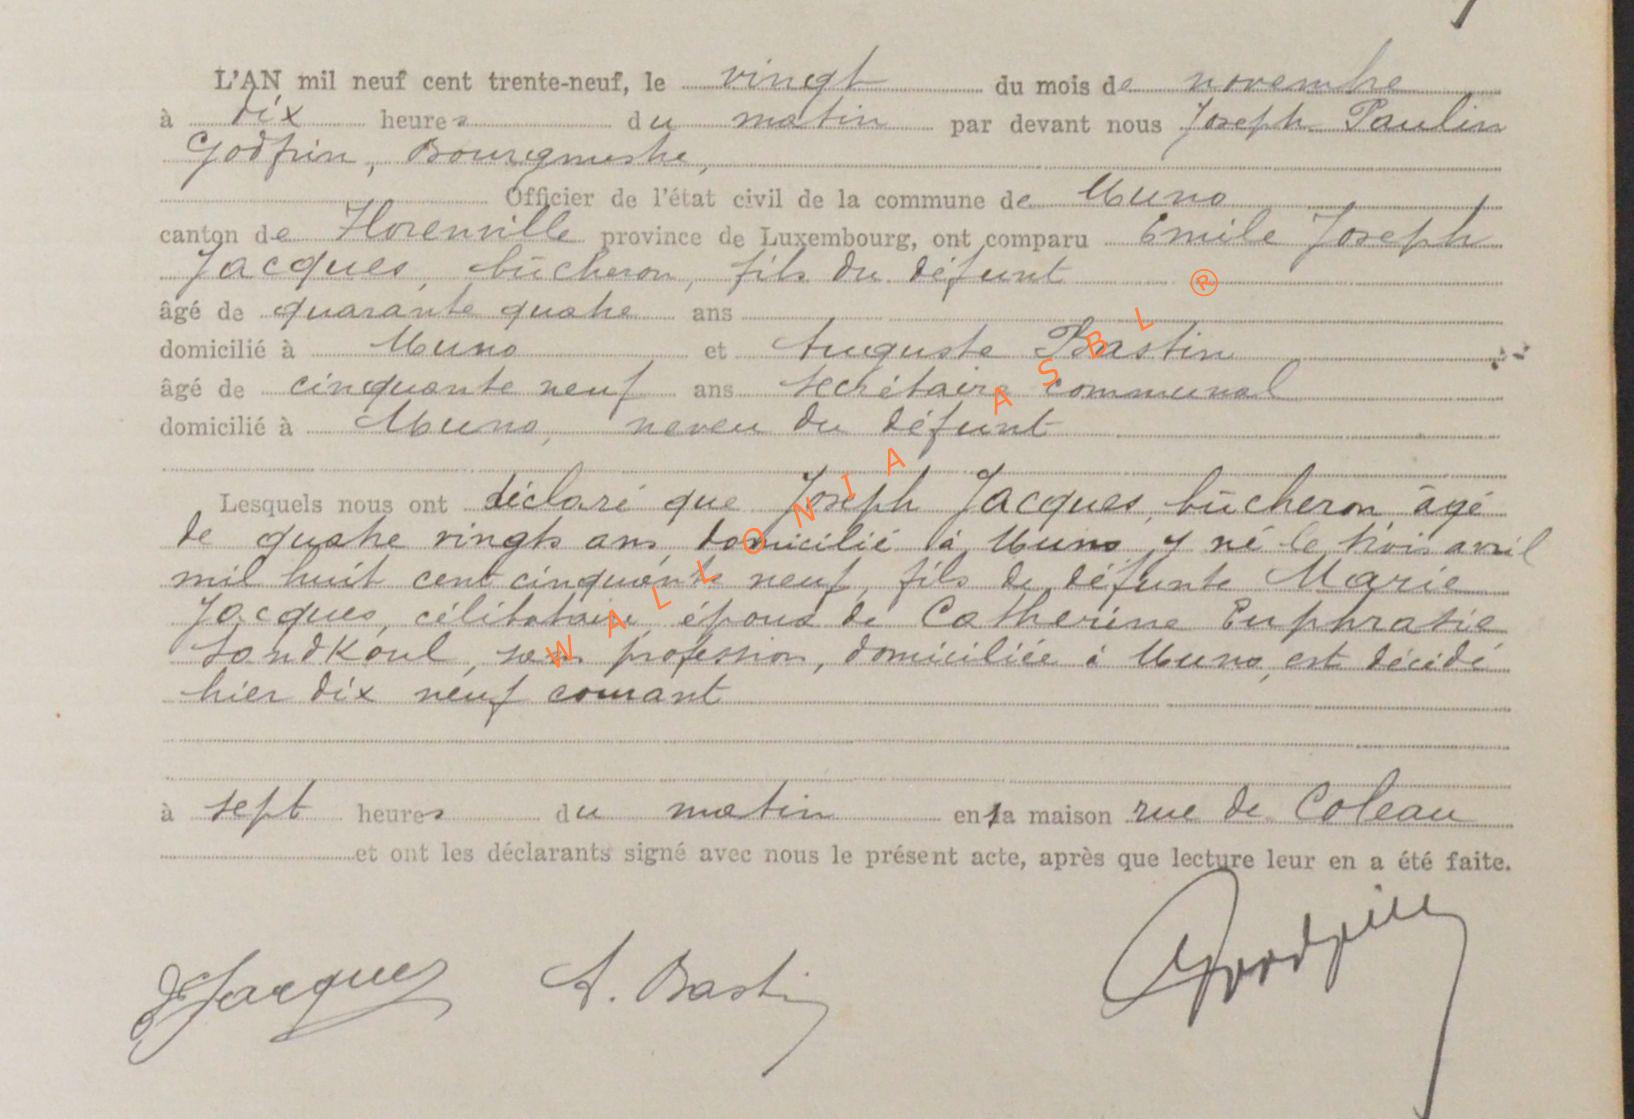 L'AN mil neuf cent trente-neuf, le vingt du mois de novembre
à dix heures du matin par devant nous Joseph Paulin
Godfrin, Bourgmestre,
Officier de l'état civil de la commune de Muno
canton de Florenville province de Luxembourg, ont comparu Emile Joseph
Jacques, bûcheron, fils du défunt
âgé de quarante quatre ans
domicilié à Muno et Auguste Bastin
âgé de cinquante neuf ans secrétaire communal
domicilié à Muno, neveu du défunt
Lesquels nous ont déclaré que Joseph Jacques, bûcheron, âgé
de quatre vingts ans, domicilié à Muno y né le trois avril
mil huit cent cinquante neuf, fils de défunte Marie
Jacques, célibataire, époux de Catherine Euphrasie
Sandkoul, sans profession, domiciliée à Muno, est décédé
hier dix neuf courant
à sept heures du matin en sa maison rue de Coleau
et ont les déclarants signé avec nous le présent acte, après que lecture leur en a été faite.
EJacques A. Bastin Godfrin
WALLONIA ASBL ®